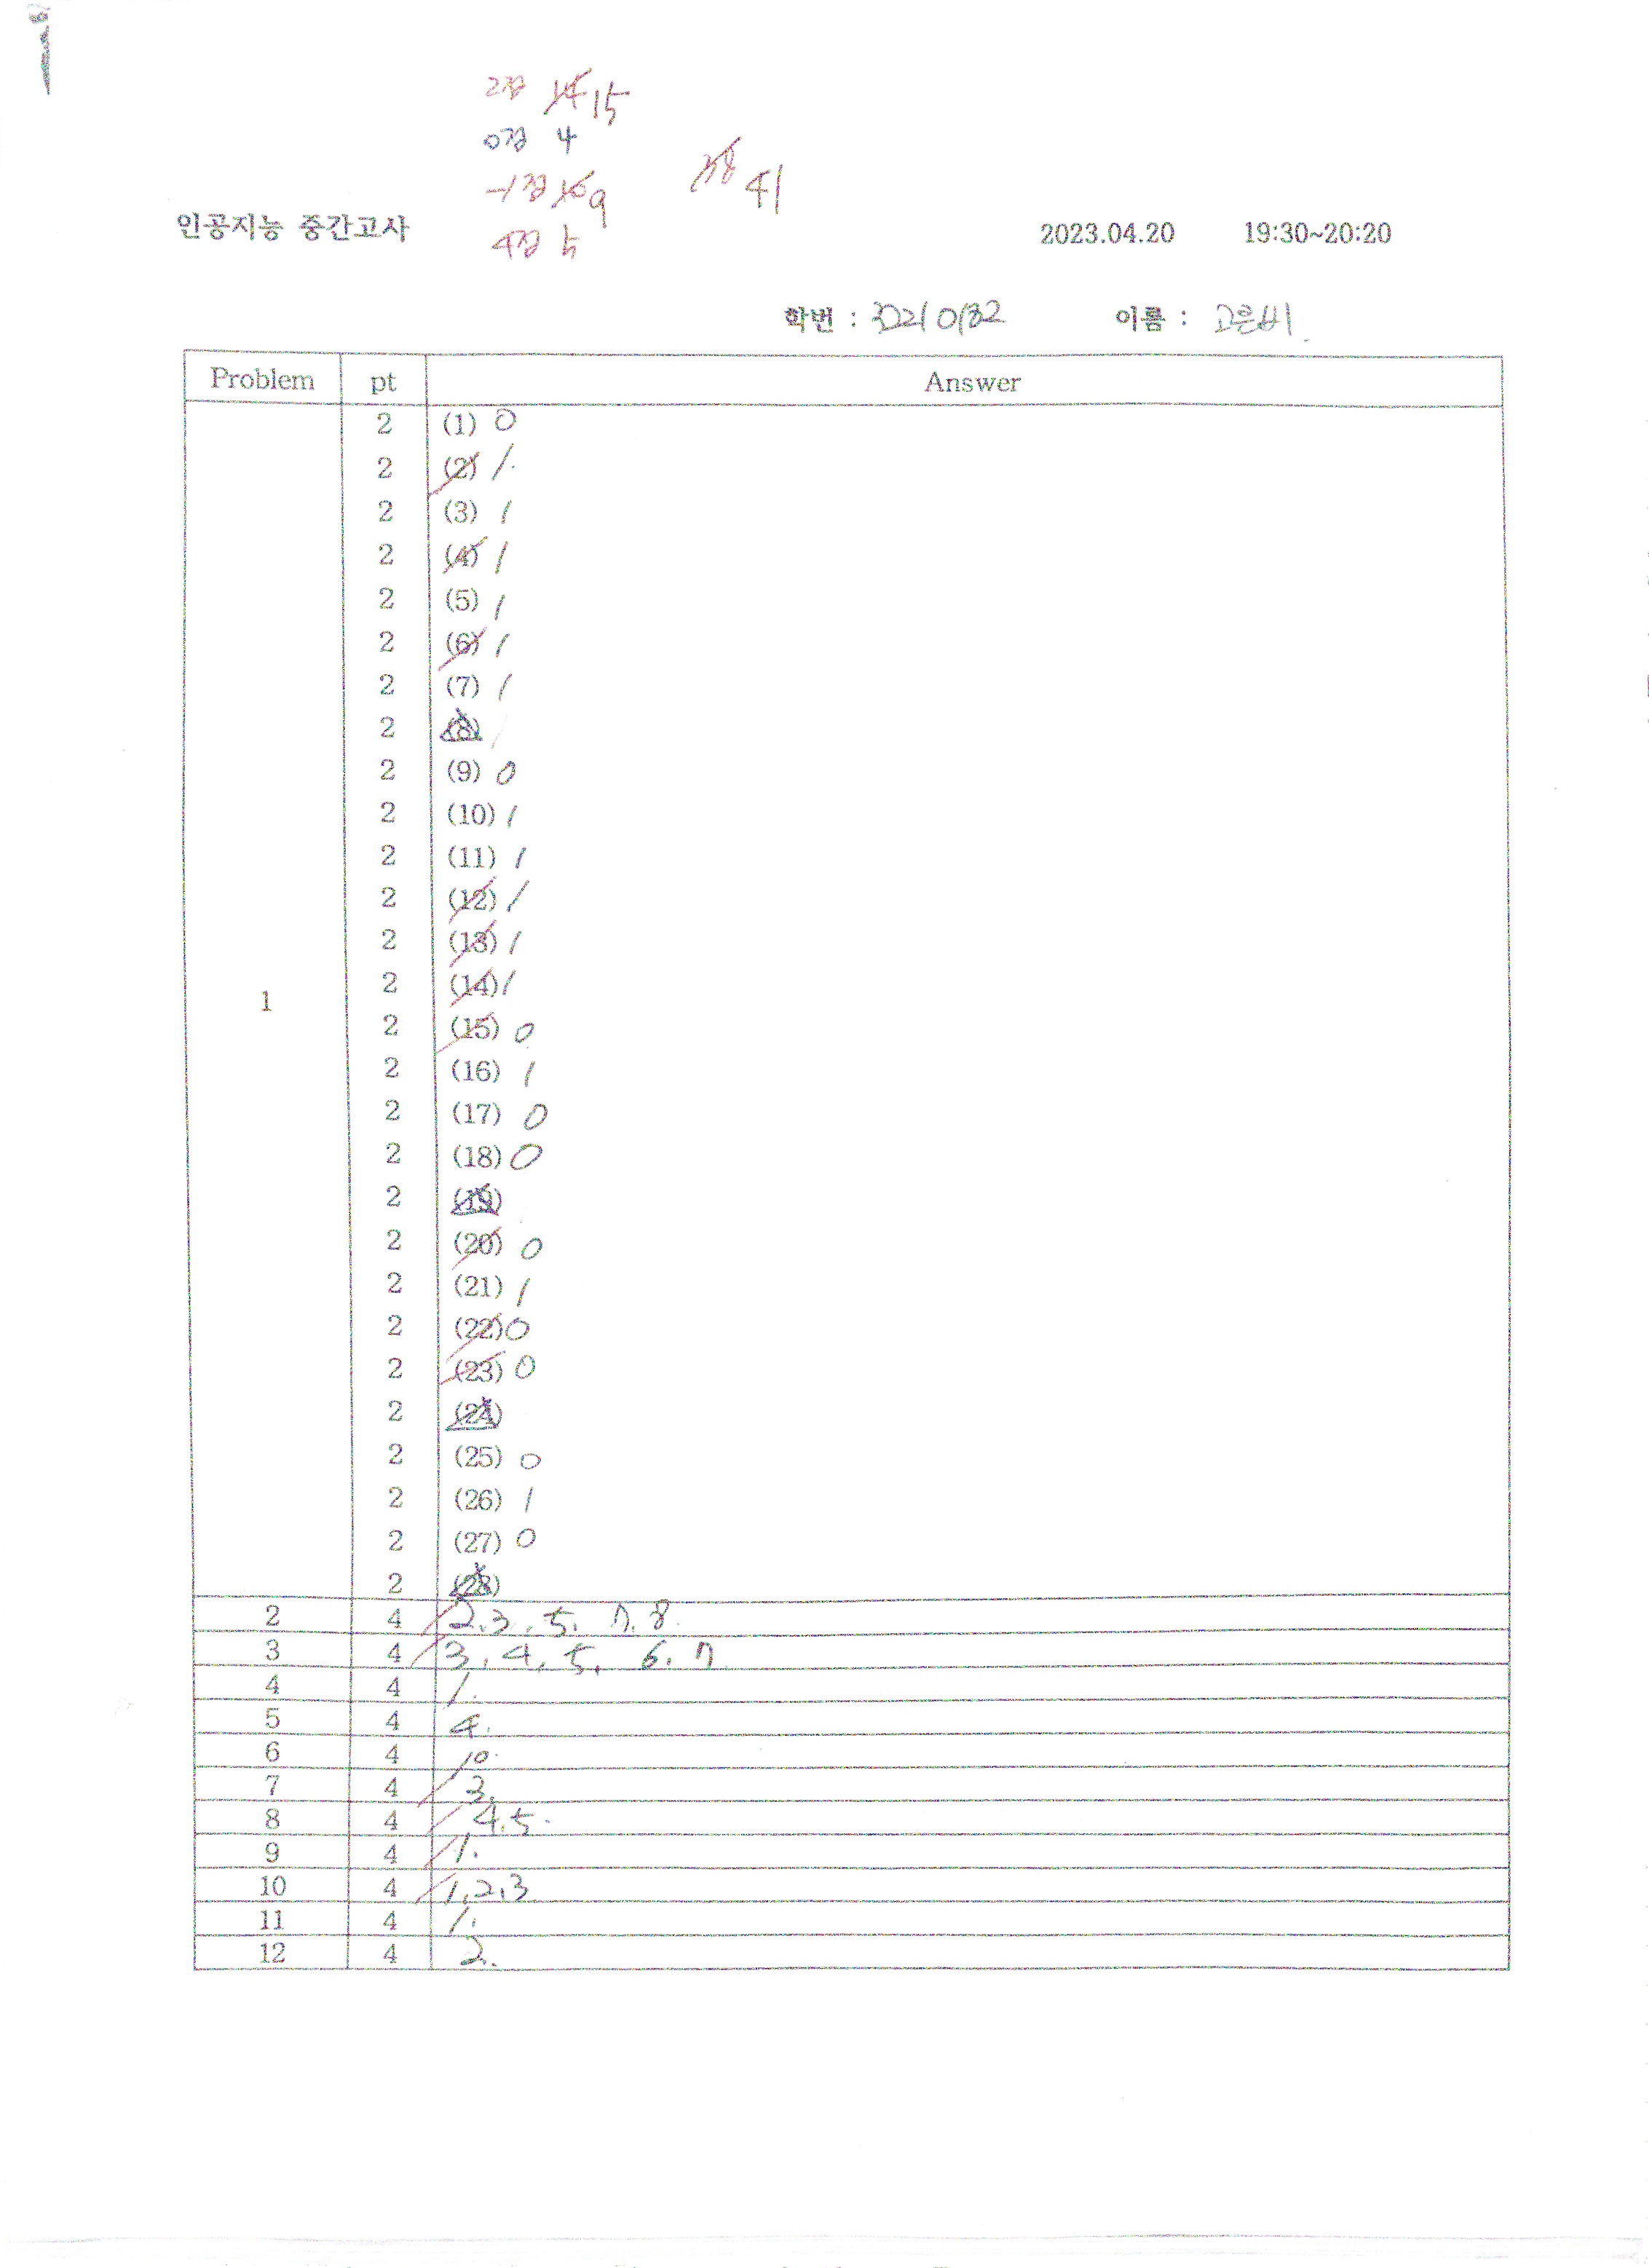 2점 14 15
0점 4
-1점 10 9 38 41
인공지능 중간고사 2023.04.20 19:30~20:20
4점 5
학번 : 32210132 이름 : 고은비
Problem pt Answer
2 (1) 0
2 (2) 1.
2 (3) 1
2 (4) 1
2 (5) 1
2 (6) 1
2 (7) 1
2 (8)
2 (9) 0
2 (10) 1
2 (11) 1
2 (12) 1
2 (13) 1
2 (14) 1
1
2 (15) 0
2 (16) 1
2 (17) 0
2 (18) 0
2 (19)
2 (20) 0
2 (21) 1
2 (22) 0
2 (23) 0
2 (24)
2 (25) 0
2 (26) 1
2 (27) 0
2 (28)
2 4 2.3. 5. 7. 8.
3 4 3. 4. 5. 6. 7
4 4 1.
5 4 4.
6 4 10.
7 4 3.
8 4 4.5.
9 4 1.
10 4 1.2.3
11 4 1.
12 4 2.